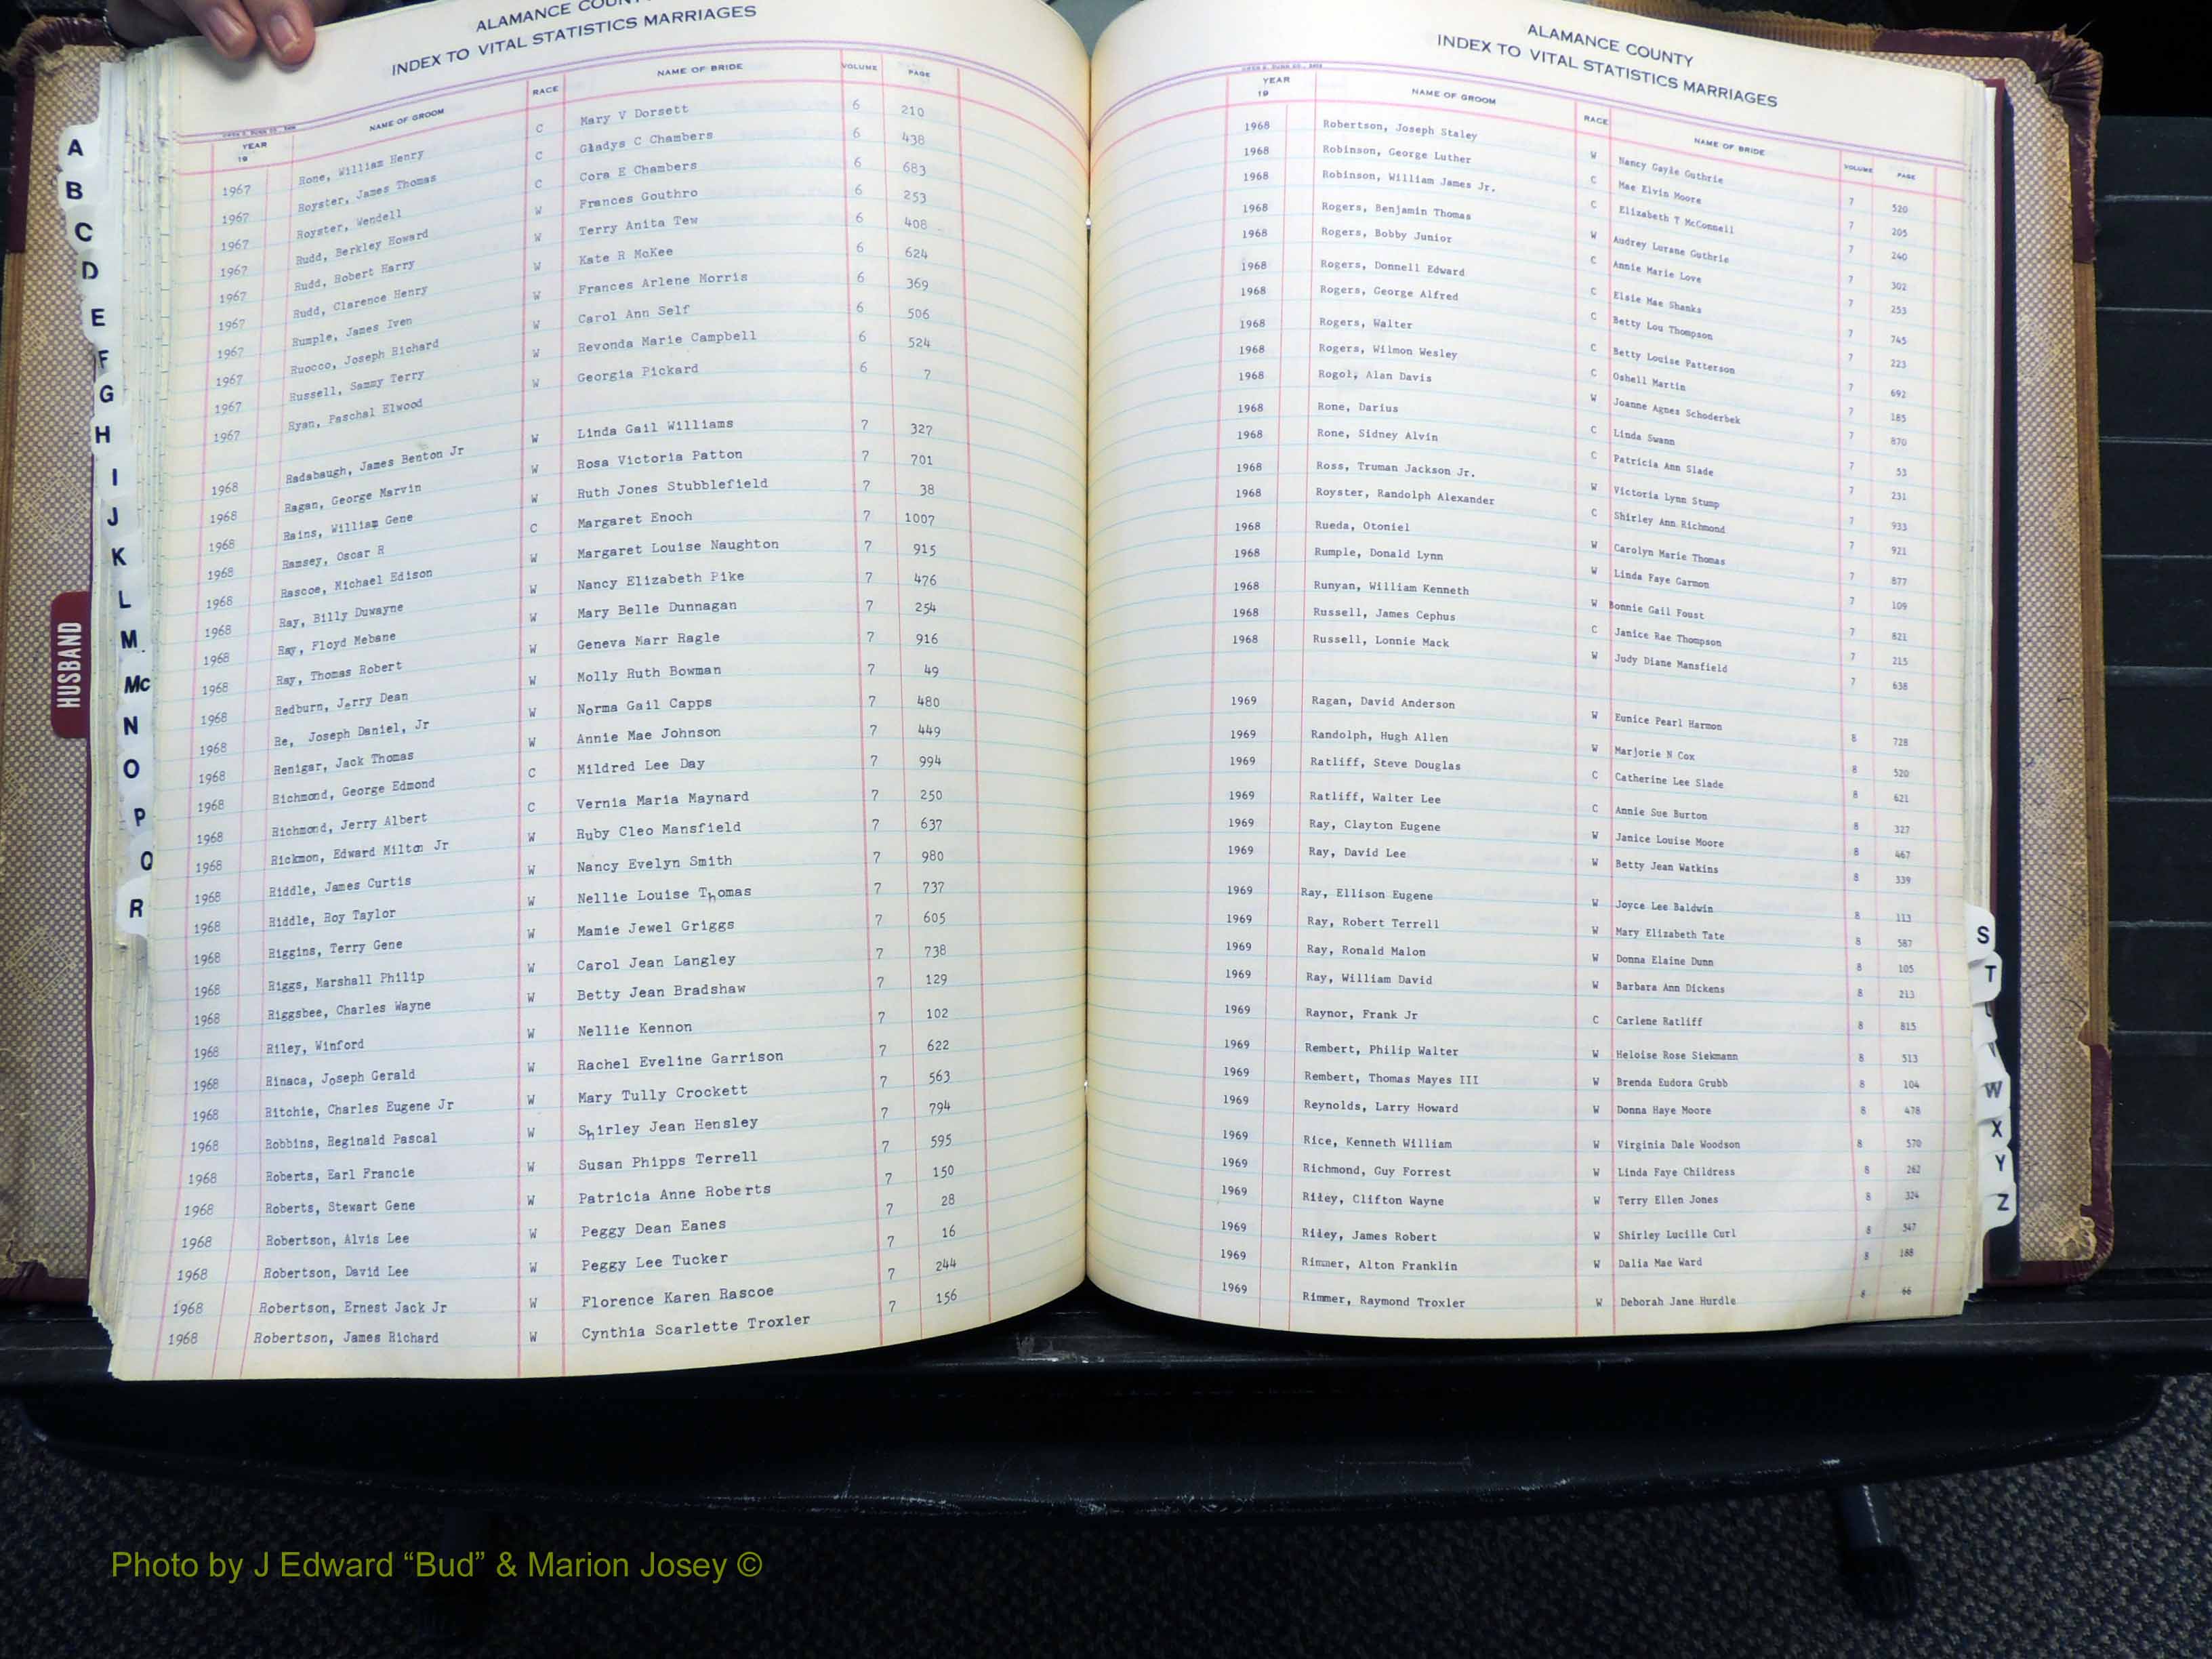 ALAMANCE COUNTY
INDEX TO VITAL STATISTICS MARRIAGES
YEAR 19 NAME OF GROOM RACE NAME OF BRIDE VOLUME PAGE
1967 Rone, William Henry C Mary V Dorsett 6 210
1967 Royster, James Thomas C Gladys C Chambers 6 438
1967 Royster, Wendell C Cora E Chambers 6 683
1967 Rudd, Berkley Howard W Frances Gouthro 6 253
1967 Rudd, Robert Harry W Terry Anita Tew 6 408
1967 Rudd, Clarence Henry W Kate R McKee 6 624
1967 Rumple, James Iven W Frances Arlene Morris 6 369
1967 Ruocco, Joseph Richard W Carol Ann Self 6 506
1967 Russell, Sammy Terry W Revonda Marie Campbell 6 524
1967 Ryan, Paschal Elwood W Georgia Pickard 6 7
1968 Radabaugh, James Benton Jr W Linda Gail Williams 7 327
1968 Ragan, George Marvin W Rosa Victoria Patton 7 701
1968 Rains, William Gene W Ruth Jones Stubblefield 7 38
1968 Ramsey, Oscar R C Margaret Enoch 7 1007
1968 Rascoe, Michael Edison W Margaret Louise Naughton 7 915
1968 Ray, Billy Duwayne W Nancy Elizabeth Pike 7 476
1968 Ray, Floyd Mebane W Mary Belle Dunnagan 7 254
1968 Ray, Thomas Robert W Geneva Marr Ragle 7 916
1968 Redburn, Jerry Dean W Molly Ruth Bowman 7 49
1968 Re, Joseph Daniel, Jr W Norma Gail Capps 7 480
1968 Renigar, Jack Thomas W Annie Mae Johnson 7 449
1968 Richmond, George Edmond C Mildred Lee Day 7 994
1968 Richmond, Jerry Albert C Vernia Maria Maynard 7 250
1968 Rickmon, Edward Milton Jr W Ruby Cleo Mansfield 7 637
1968 Riddle, James Curtis W Nancy Evelyn Smith 7 980
1968 Riddle, Roy Taylor W Nellie Louise Thomas 7 737
1968 Riggins, Terry Gene W Mamie Jewel Griggs 7 605
1968 Riggs, Marshall Philip W Carol Jean Langley 7 738
1968 Riggsbee, Charles Wayne W Betty Jean Bradshaw 7 129
1968 Riley, Winford W Nellie Kennon 7 102
1968 Rinaca, Joseph Gerald W Rachel Eveline Garrison 7 622
1968 Ritchie, Charles Eugene Jr W Mary Tully Crockett 7 563
1968 Robbins, Reginald Pascal W Shirley Jean Hensley 7 794
1968 Roberts, Earl Francie W Susan Phipps Terrell 7 595
1968 Roberts, Stewart Gene W Patricia Anne Roberts 7 150
1968 Robertson, Alvis Lee W Peggy Dean Eanes 7 28
1968 Robertson, David Lee W Peggy Lee Tucker 7 16
1968 Robertson, Ernest Jack Jr W Florence Karen Rascoe 7 244
1968 Robertson, James Richard W Cynthia Scarlette Troxler 7 156
HUSBAND
A
B
C
D
E
F
G
H
I
J
K
L
M
Mc
N
O
P
Q
R
ALAMANCE COUNTY
INDEX TO VITAL STATISTICS MARRIAGES
YEAR 19 NAME OF GROOM RACE NAME OF BRIDE VOLUME PAGE
1968 Robertson, Joseph Staley W Nancy Gayle Guthrie 7 520
1968 Robinson, George Luther C Mae Elvin Moore 7 205
1968 Robinson, William James Jr. C Elizabeth T McConnell 7 240
1968 Rogers, Benjamin Thomas W Audrey Lurane Guthrie 7 302
1968 Rogers, Bobby Junior C Annie Marie Love 7 253
1968 Rogers, Donnell Edward C Elsie Mae Shanks 7 745
1968 Rogers, George Alfred C Betty Lou Thompson 7 223
1968 Rogers, Walter C Betty Louise Patterson 7 692
1968 Rogers, Wilmon Wesley C Oshell Martin 7 185
1968 Rogol, Alan Davis W Joanne Agnes Schoderbek 7 870
1968 Rone, Darius C Linda Swann 7 53
1968 Rone, Sidney Alvin C Patricia Ann Slade 7 231
1968 Ross, Truman Jackson Jr. W Victoria Lynn Stump 7 933
1968 Royster, Randolph Alexander C Shirley Ann Richmond 7 921
1968 Rueda, Otoniel W Carolyn Marie Thomas 7 877
1968 Rumple, Donald Lynn W Linda Faye Garmon 7 109
1968 Runyan, William Kenneth W Bonnie Gail Foust 7 821
1968 Russell, James Cephus C Janice Rae Thompson 7 215
1968 Russell, Lonnie Mack W Judy Diane Mansfield 7 638
1969 Ragan, David Anderson W Eunice Pearl Harmon 8 728
1969 Randolph, Hugh Allen W Marjorie N Cox 8 520
1969 Ratliff, Steve Douglas C Catherine Lee Slade 8 621
1969 Ratliff, Walter Lee C Annie Sue Burton 8 327
1969 Ray, Clayton Eugene W Janice Louise Moore 8 467
1969 Ray, David Lee W Betty Jean Watkins 8 339
1969 Ray, Ellison Eugene W Joyce Lee Baldwin 8 113
1969 Ray, Robert Terrell W Mary Elizabeth Tate 8 587
1969 Ray, Ronald Malon W Donna Elaine Dunn 8 105
1969 Ray, William David W Barbara Ann Dickens 8 213
1969 Raynor, Frank Jr C Carlene Ratliff 8 815
1969 Rembert, Philip Walter W Heloise Rose Siekmann 8 513
1969 Rembert, Thomas Mayes III W Brenda Eudora Grubb 8 104
1969 Reynolds, Larry Howard W Donna Haye Moore 8 478
1969 Rice, Kenneth William W Virginia Dale Woodson 8 570
1969 Richmond, Guy Forrest W Linda Faye Childress 8 262
1969 Riley, Clifton Wayne W Terry Ellen Jones 8 324
1969 Riley, James Robert W Shirley Lucille Curl 8 547
1969 Rimmer, Alton Franklin W Dalia Mae Ward 8 188
1969 Rimmer, Raymond Troxler W Deborah Jane Hurdle 8 66
S
T
W
X
Y
Z
Photo by J Edward “Bud” & Marion Josey ©